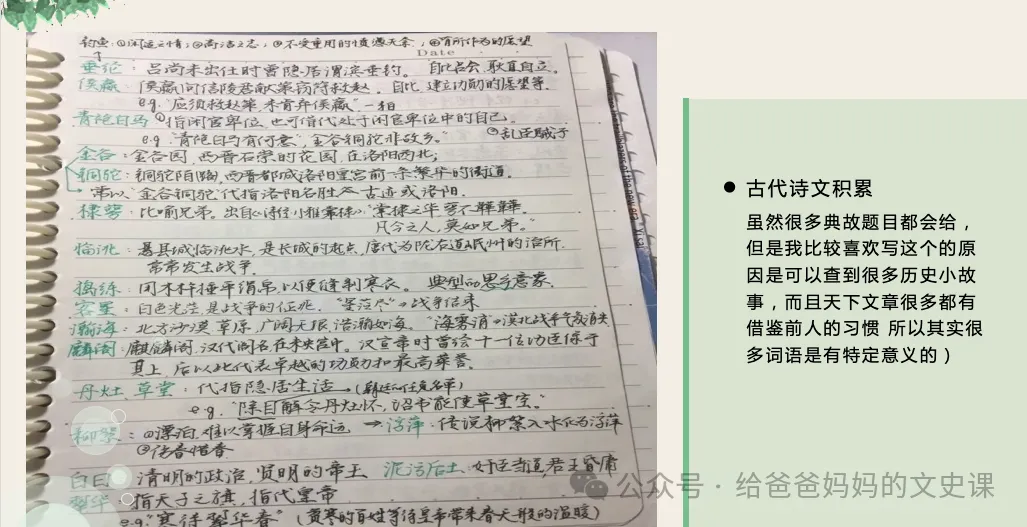 钓鱼：①闲适之情；②高洁之志；③不受重用的愤懑无奈，④有所作为的愿望
Date
垂纶：吕尚未出仕时曾隐居渭滨垂钓。
侯嬴：侯嬴向信陵君献策窃符救赵。自比，建立功勋的愿望等
e.g. "应须救赵策，未肯弃侯嬴"
青袍白马 ①指闲官卑位，也可借代处于闲官卑位中的自己。
e.g "青袍白马有何意，金谷铜驼非故乡。" ②乱臣贼子
金谷：金谷园，西晋石崇的花园，在洛阳西北；
铜驼：铜驼陌路，西晋都城洛阳皇宫前一条繁华的街道。
常以"金谷铜驼"代指洛阳名胜古迹或洛阳.
棣萼：比喻兄弟。出自《诗经·小雅·常棣》"常棣之华，鄂不韡韡。
凡今之人，莫如兄弟。"
临洮：县城临洮水，是长城的起点，唐代为陇右道岷州的治所.
常常发生战争.
捣练：用木杵捶平绢帛以便缝制寒衣。典型的思乡意象.
客星：白色光芒，是战争的征兆.
瀚海：北方沙漠草原，广阔无限，浩瀚如海。
麟阁：麒麟阁，汉代阁名在未央宫中。汉宣帝时曾绘十一位功臣像于
其上，后以此代表卓越的功勋和最高荣誉.
丹灶，草堂：代指隐居生活
e.g. "除目解令丹灶怀，诏书能使草堂空。"
柳絮：①漂泊，难以掌握自身命运 → 浮萍：传说柳絮入水化为浮萍
②伤春惜春
白日 清明的政治，贤明的帝王 泥污后土：奸臣当道，君王昏庸
翠华 指天子之旗，指代皇帝
e.g. "寒待翠华春"
● 古代诗文积累
虽然很多典故题目都会给，
但是我比较喜欢写这个的原
因是可以查到很多历史小故
事，而且天下文章很多都有
借鉴前人的习惯 所以其实很
多词语是有特定意义的）
公众号·给爸爸妈妈的文史课